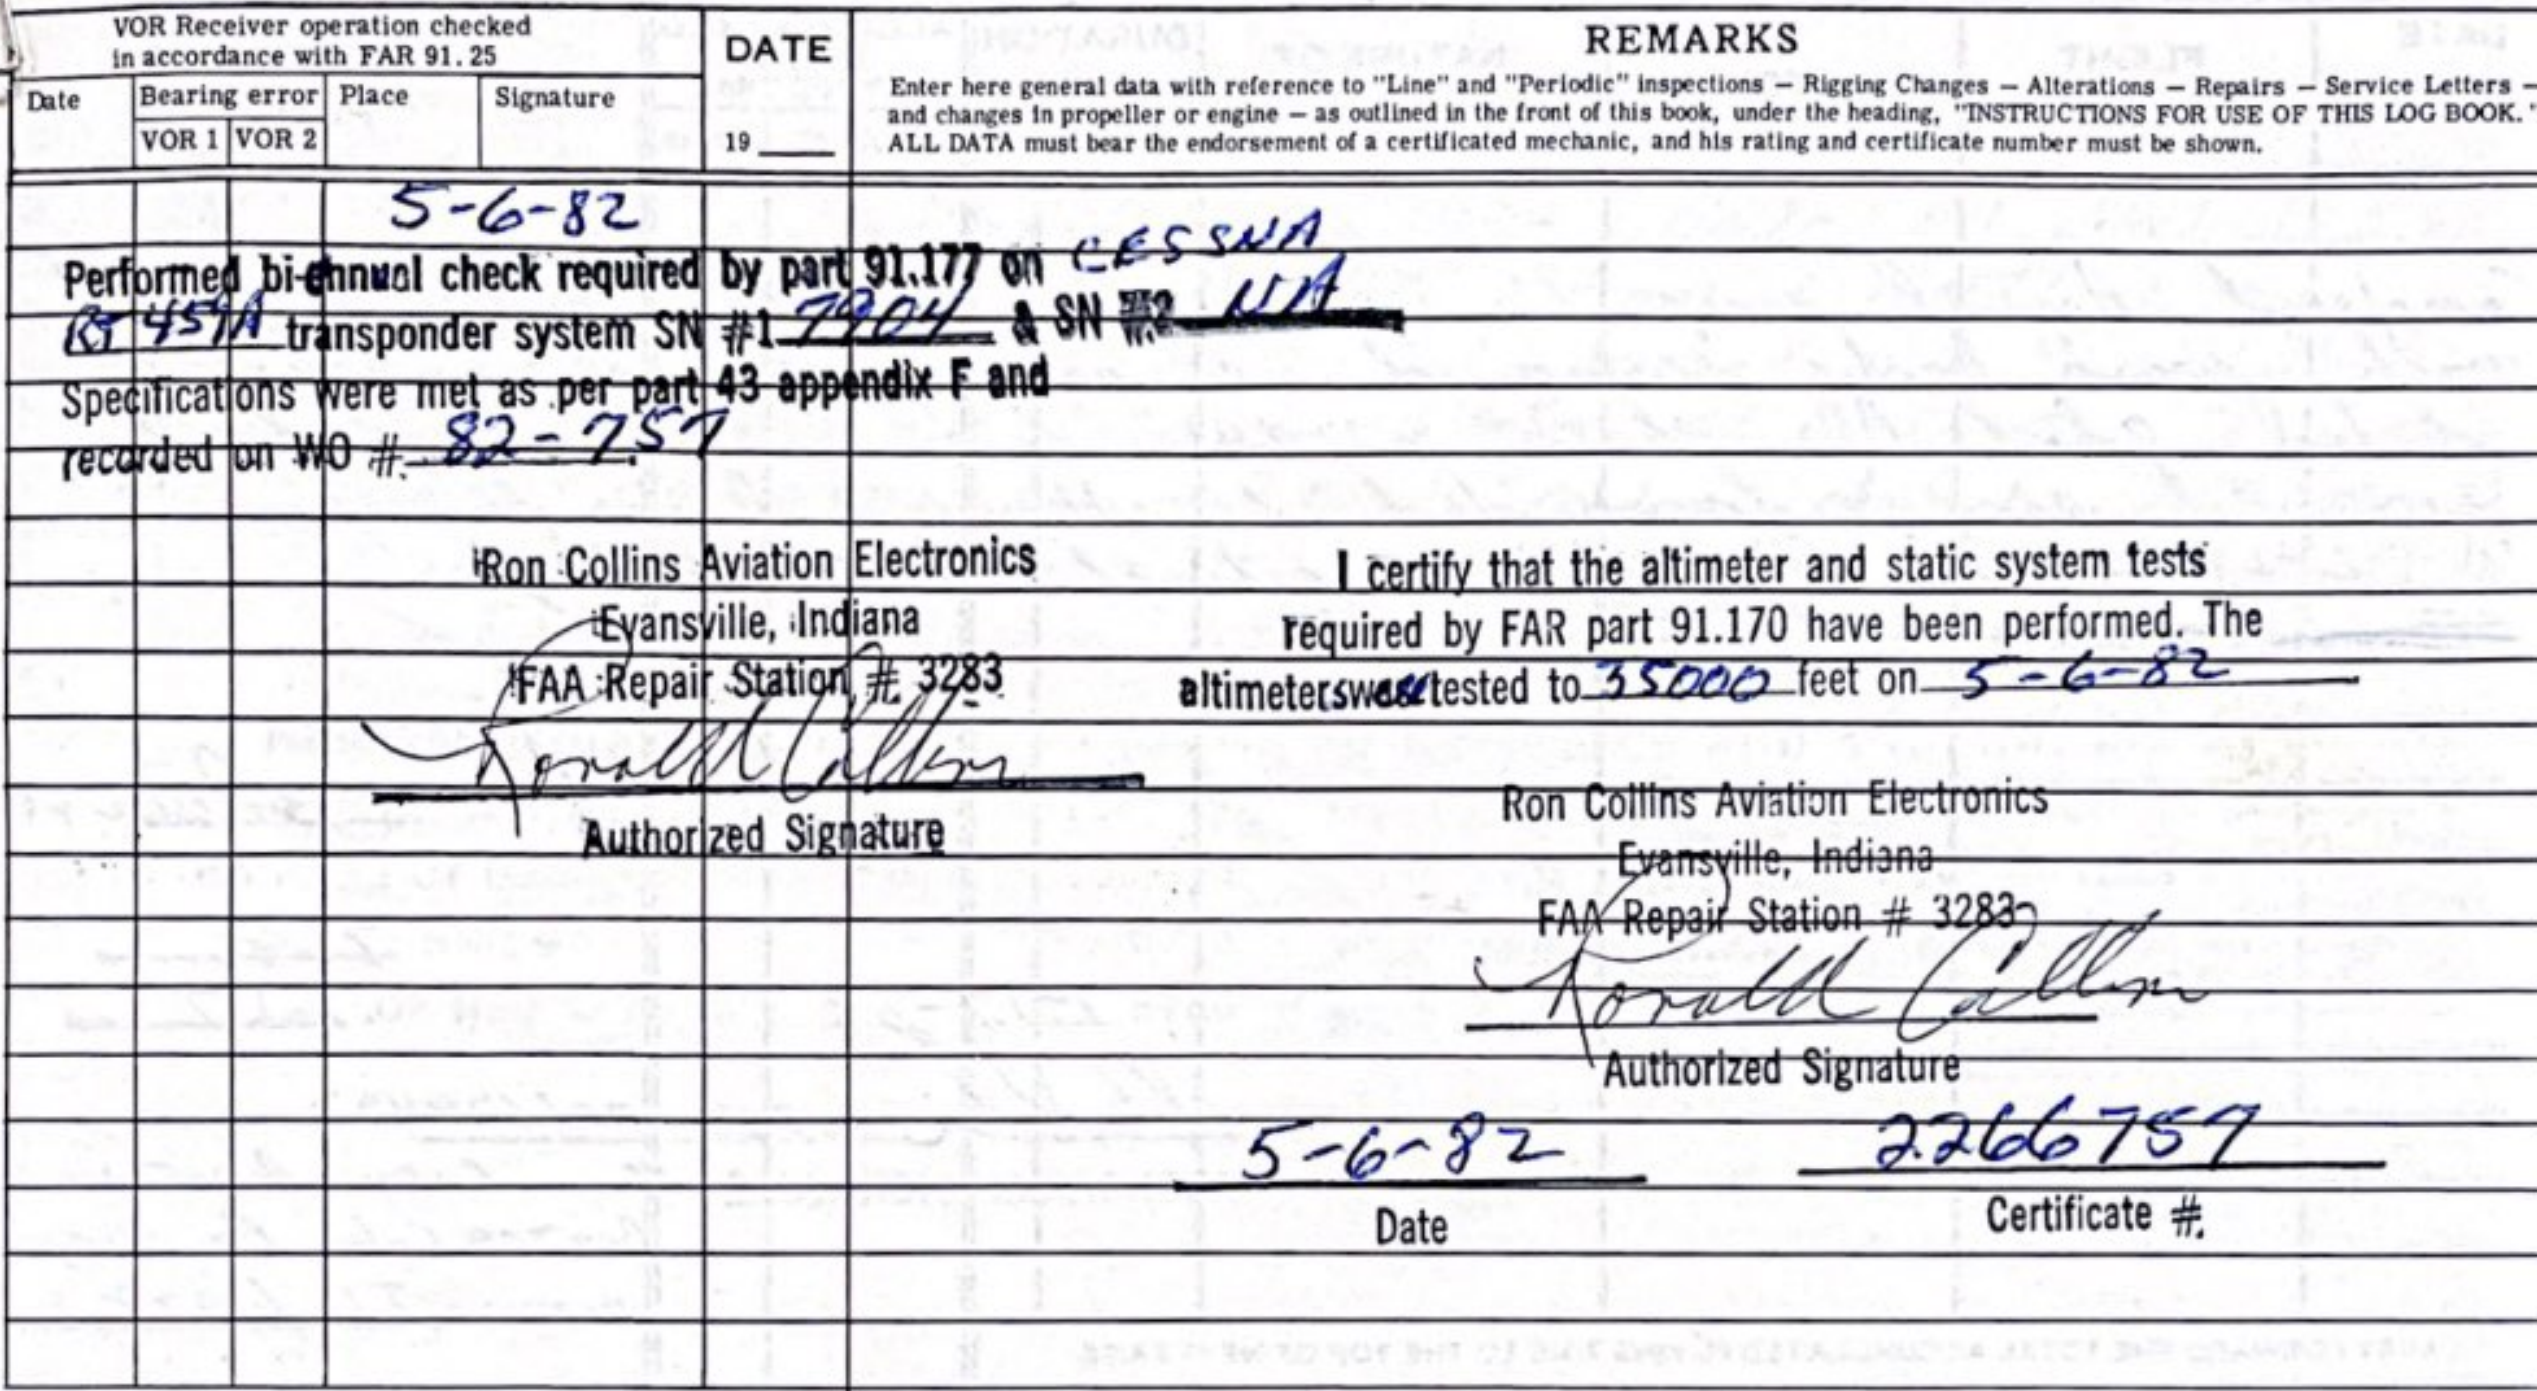 VOR Receiver operation checked
in accordance with FAR 91.25
Date
Bearing error
VOR 1 VOR 2
Place
Signature
DATE
19
REMARKS
Enter here general data with reference to "Line" and "Periodic" inspections — Rigging Changes — Alterations — Repairs — Service Letters —
and changes in propeller or engine — as outlined in the front of this book, under the heading, "INSTRUCTIONS FOR USE OF THIS LOG BOOK."
ALL DATA must bear the endorsement of a certificated mechanic, and his rating and certificate number must be shown.
5-6-82
Performed bi-annual check required by part 91.177 on CESSNA
RT 459A transponder system SN #1 7904 & SN #2 N/A
Specifications were met as per part 43 appendix F and
recorded on WO # 82-757
Ron Collins Aviation Electronics
Evansville, Indiana
FAA Repair Station # 3283
Ronald Collins
Authorized Signature
I certify that the altimeter and static system tests
required by FAR part 91.170 have been performed. The
altimeters were tested to 35000 feet on 5-6-82
Ron Collins Aviation Electronics
Evansville, Indiana
FAA Repair Station # 3283
Ronald Collins
Authorized Signature
5-6-82
Date
2266757
Certificate #